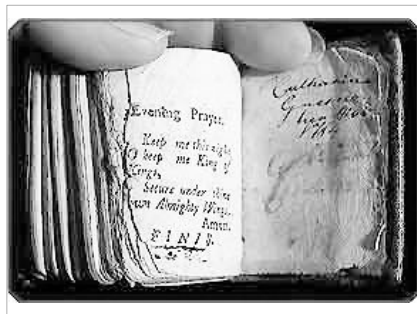 Evening Prayer.
Keep me this night,
O keep me King of
Kings,
Secure under thine
own Almighty Wings.
Amen.
FINIS.
Catharine
her Book